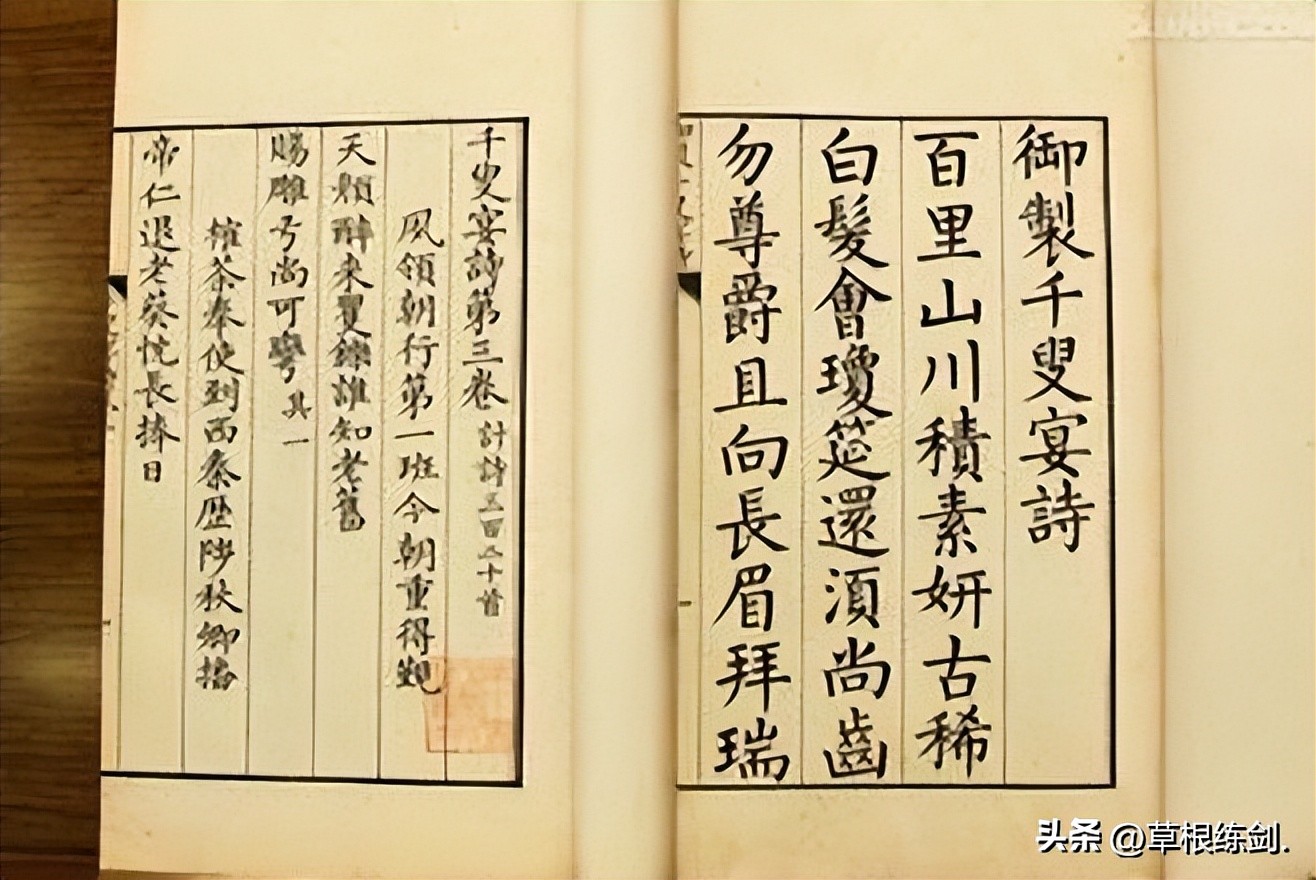 御製千叟宴詩
百里山川積素妍古稀
白髮會瓊筵還須尚齒
勿尊爵且向長眉拜瑞
千叟宴詩第三卷 計詩五百五十首
夙領朝行第一班今朝重得覲
天顏醉来矍鑠誰知老舊
賜雕弓尚可彎 其一
榷茶奉使到西秦歷陟秋卿播
帝仁退老葵忱長捧日
头条 @草根练剑.